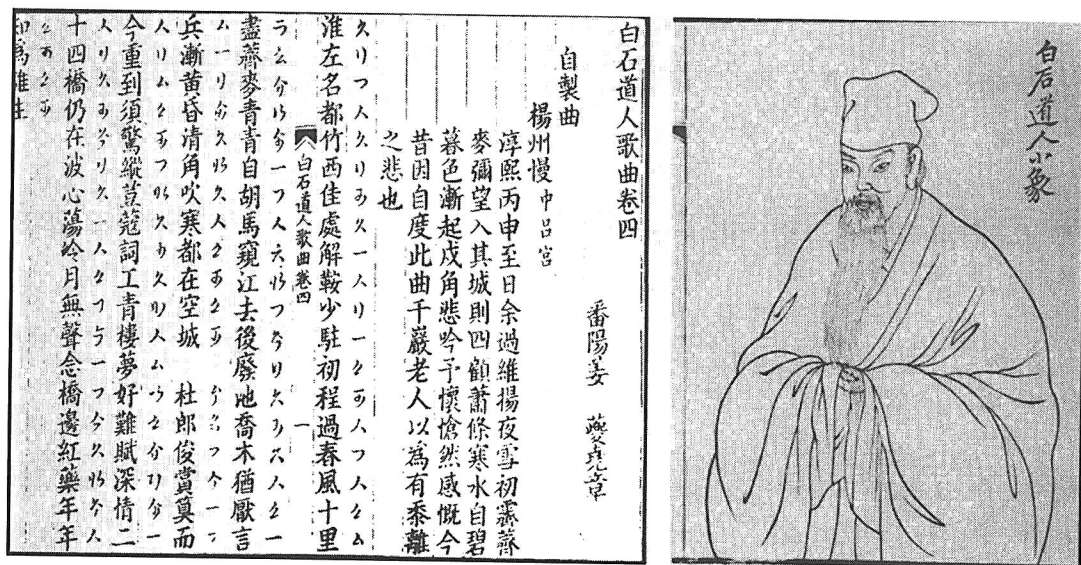 白石道人小象
白石道人歌曲卷四
番陽姜　夔堯章
自製曲
楊州慢 中呂宮
淳熙丙申至日余過維揚夜雪初霽薺
麥彌望入其城則四顧蕭條寒水自碧
暮色漸起戍角悲吟予懷愴然感慨今
昔因自度此曲千巖老人以為有黍離
之悲也
淮左名都竹西佳處解鞍少駐初程過春風十里
白石道人歌曲卷四　一
盡薺麥青青自胡馬窺江去後廢池喬木猶厭言
兵漸黃昏清角吹寒都在空城　杜郎俊賞算而
今重到須驚縱荳蔻詞工青樓夢好難賦深情二
十四橋仍在波心蕩冷月無聲念橋邊紅藥年年
知為誰生